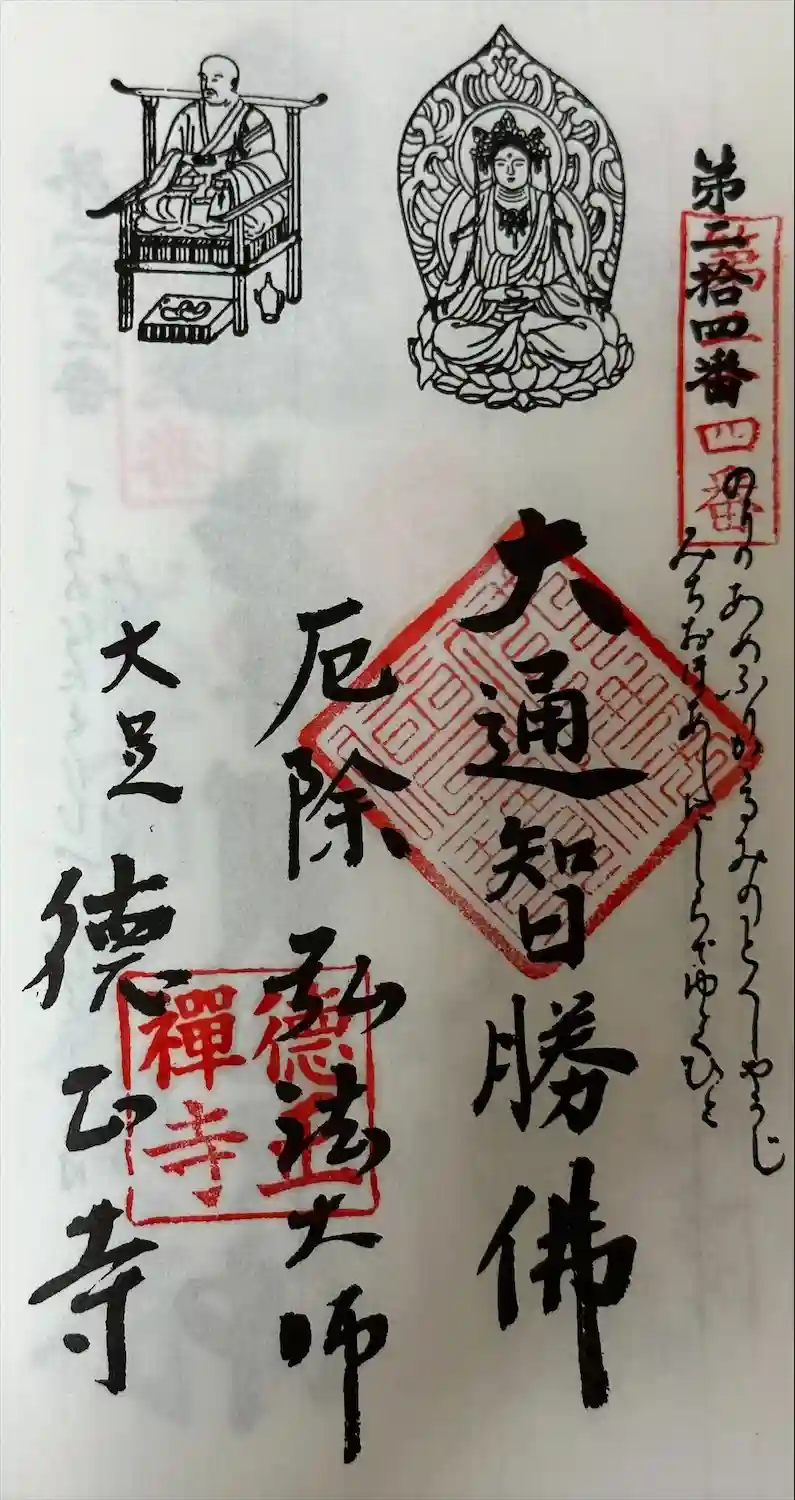 第二拾四番
四番
のりのあめふりかゝるみのとくしやうじ
みちお あし しらでゆくひと
大通智勝佛
厄除弘法大師
大足 德正寺
德正
禪寺